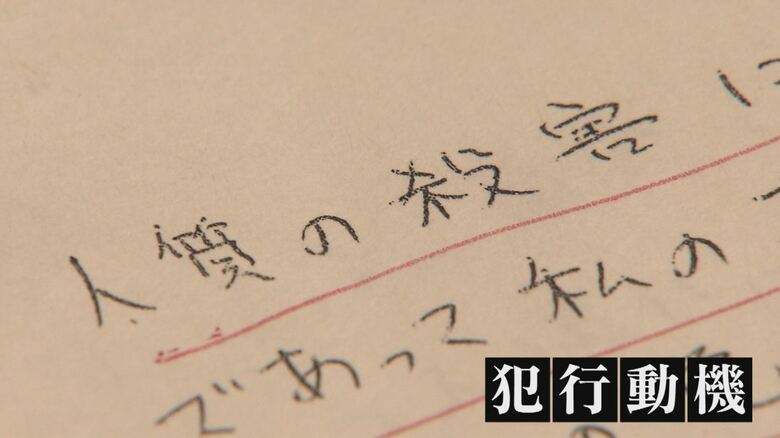 人質の殺害に
であって私の
犯行動機